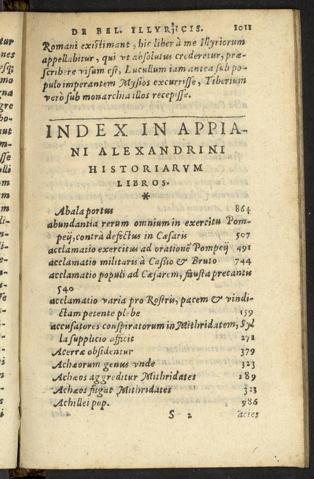 DE BEL. ILLYRICIS. 1011
Romani existimant, hic liber à me Illyriorum
appellabitur, qui vt absolutus crederetur, præ-
scribere visum est, Lucullum iam antea sub po-
pulo imperantem Mysios excurrisse, Tiberium
verò sub monarchia illos recepisse.
INDEX IN APPIA-
NI ALEXANDRINI
HISTORIARVM
LIBROS.
*
Abala portus 864
abundantia rerum omnium in exercitu Pom-
peij, contrà defectus in Cæsaris 507
acclamatio exercitus ad orationē Pompeij 491
acclamatio militaris à Caßio & Bruto 744
acclamatio populi ad Cæsarem, fausta precantis
540
acclamatio varia pro Rostris, pacem & vindi-
ctam petente plebe 159
accusatores conspiratorum in Mithridatem, Syl
la supplicio efficit 272
Acerræ obsidentur 379
Achæorum genus vnde 323
Achæos aggreditur Mithridates 289
Achæos fugat Mithridates 323
Achillei pop. 986
S 2 acies